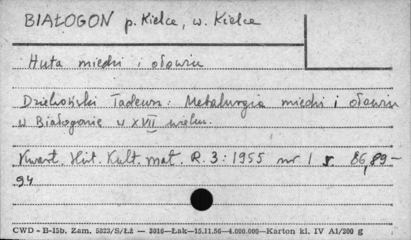 BIAŁOGON p. Kielce, w. Kielce
Huta miedzi i ołowiu
Tadeusz: Metalurgia miedzi i ołowiu
w Białogonie w XVII wieku.
Kwart. Hist. Kult. mat. R. 3: 1955 nr 1 s. 86, 89-
94
CWD - B-15b. Zam. 5823/S/ŁŻ — 3016—Łak—15.11.56—4.000.000—Karton kl. IV A1/200 g